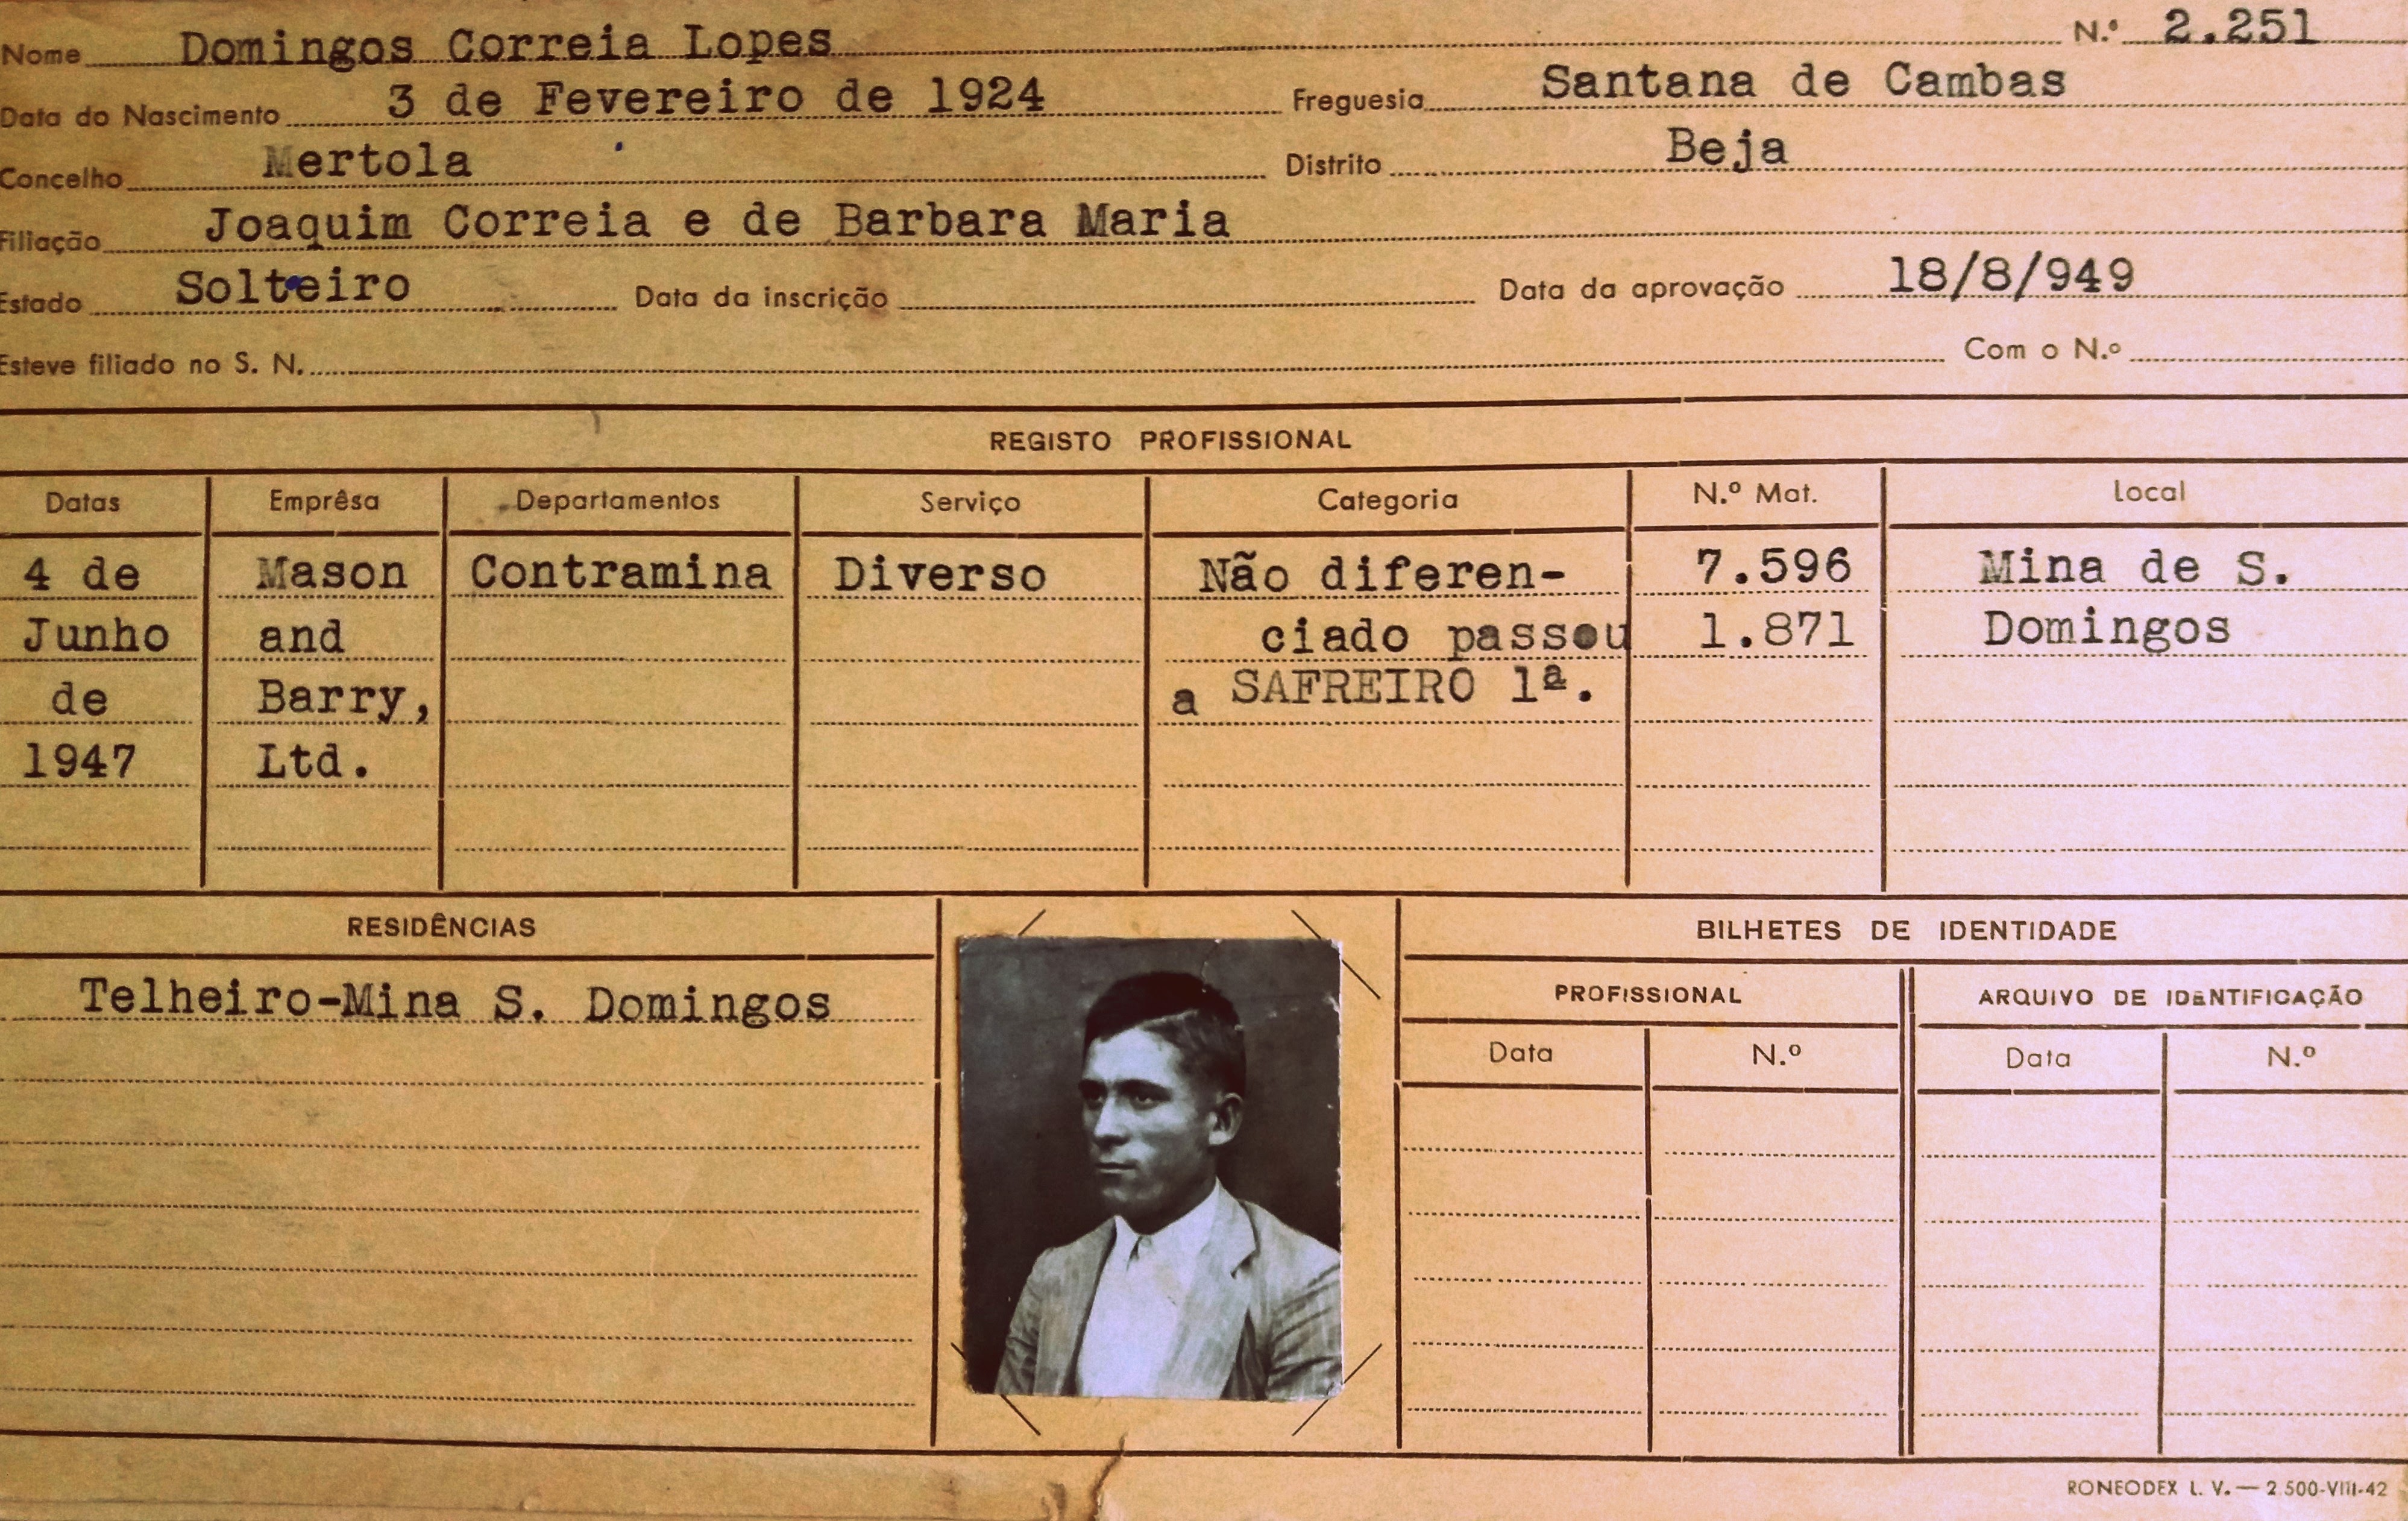 Nome Domingos Correia Lopes N.º 2.251
Data do Nascimento 3 de Fevereiro de 1924 Freguesia Santana de Cambas
Concelho Mertola Distrito Beja
Filiação Joaquim Correia e de Barbara Maria
Estado Solteiro Data da inscrição Data da aprovação 18/8/949
Esteve filiado no S. N. Com o N.º
REGISTO PROFISSIONAL
Datas Emprêsa Departamentos Serviço Categoria N.º Mat. Local
4 de Mason Contramina Diverso Não diferen- 7.596 Mina de S.
Junho and ciado passou 1.871 Domingos
de Barry, a SAFREIRO 1ª.
1947 Ltd.
RESIDÊNCIAS BILHETES DE IDENTIDADE
Telheiro-Mina S. Domingos PROFISSIONAL ARQUIVO DE IDENTIFICAÇÃO
Data N.º Data N.º
RONEODEX L. V. — 2 500-VIII-42